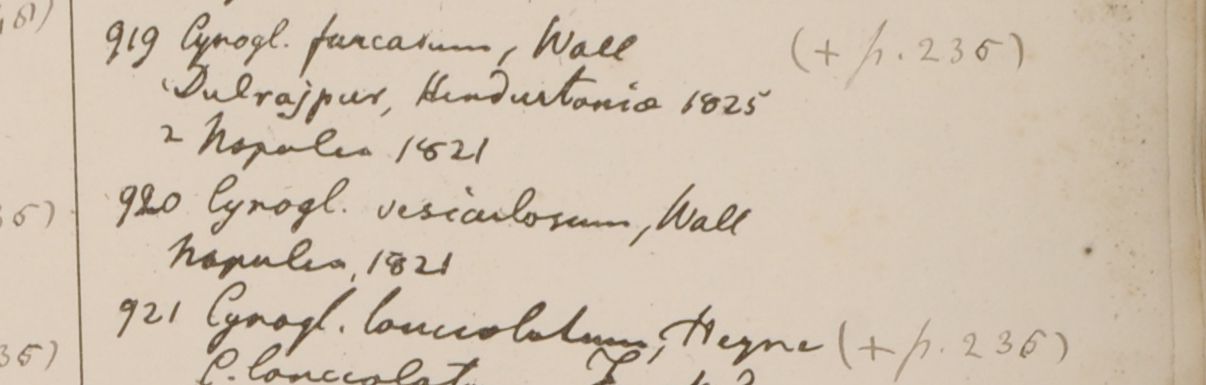 919 Cynogl. furcatum, Wall (+ p. 236)
Dulrajpur, Hindustaniæ 1825
2 Napalia 1821
920 Cynogl. vesiculosum, Wall
Napalia, 1821
921 Cynogl. lanceolatum, Heyne (+ p. 236)
C. lanceolat